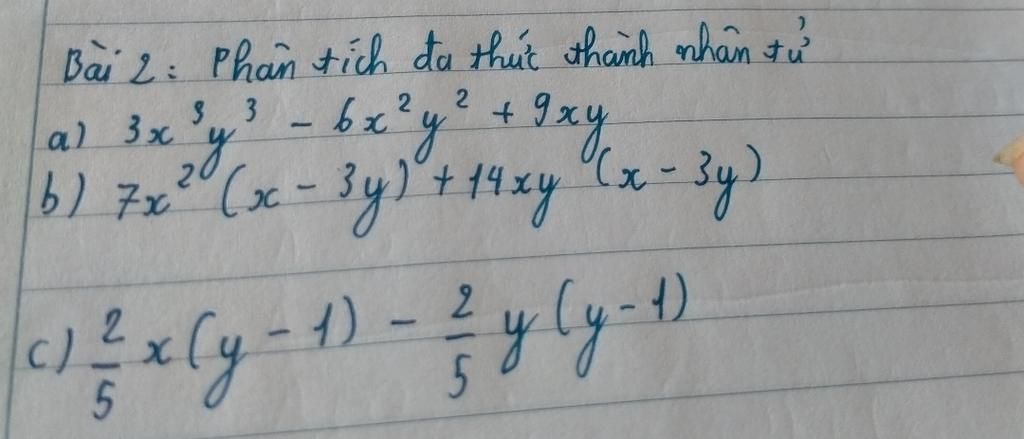 Bài 2: Phân tích đa thức thành nhân tử
a) 3x³y³ - 6x²y² + 9xy
b) 7x² (x - 3y) + 14xy (x - 3y)
c) 2/5 x(y - 1) - 2/5 y(y - 1)